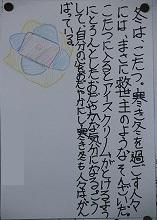 冬は、こたつ。寒き冬を過ごす人々
には、まさに救世主のようなそんざいだ。
こたつに入るとアイスクリームがとけるよう
にとろんとしたしあわせな気分になる。こう
して、自分の体をあたたかにし寒き冬も人々はがん
ばっている。